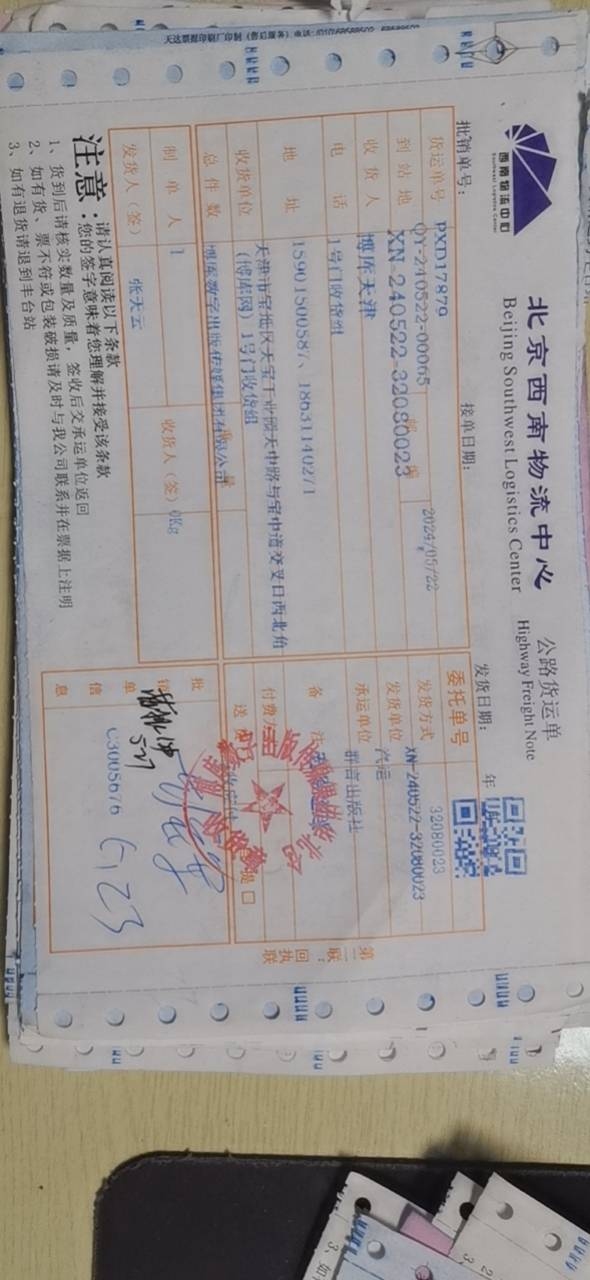 西南物流中心
Southwest Logistics Center
北京西南物流中心
Beijing Southwest Logistics Center
公路货运单
Highway Freight Note
批销单号：
接单日期：
发货日期：
年
货运单号
PXD17879
QY-240522-00065
2024/05/22
到站地
XN-240522-32080023
收货人
博库天津
电话
1号门收货组
地址
15901500587、18631140271
收货单位
天津市宝坻区天宝工业园天中路与宝中道交叉口西北角
(博库网) 1号门收货组
总件数
博库数字出版传媒集团有限公司
制单人
1
收货人(签)
0Kg
发货人(签)
张天云
委托单号
32080023
发货方式
XN-240522-32080023
发货单位
汽运
承运单位
群言出版社
备注
付费方
送
提
批
销
单
信
息
C3005676
6.23
527
第二联：回执联
注意：
请认真阅读以下条款
您的签字意味着您理解并接受该条款
1、货到后请核实数量及质量，签收后交承运单位返回
2、如有货、票不符或包装破损请及时与我公司联系并在票据上注明
3、如有退货请退到丰台站